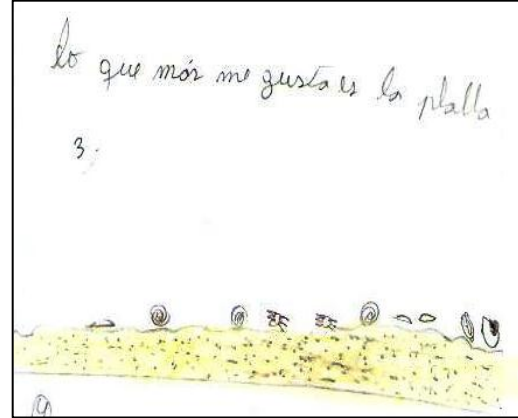 lo que más me gusta es la plalla
3.